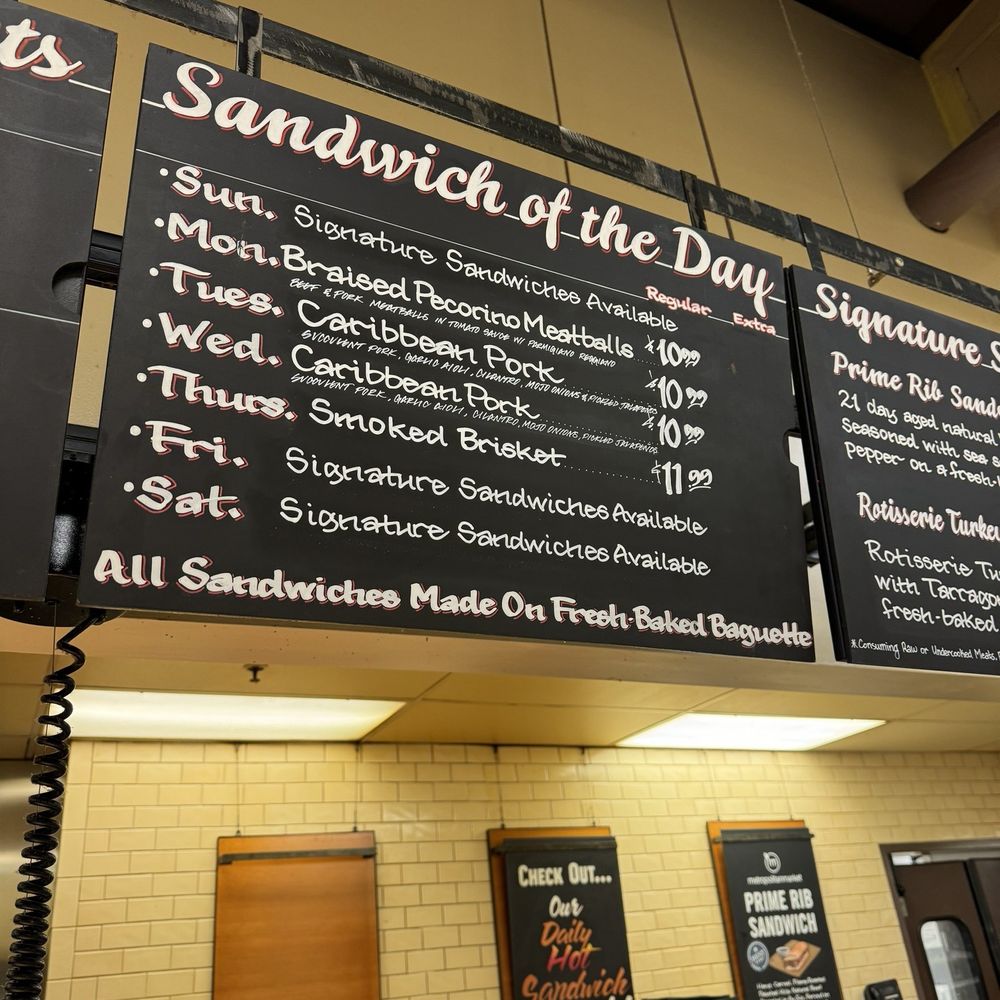 ts
Sandwich of the Day
Regular Extra
• Sun. Signature Sandwiches Available
• Mon. Braised Pecorino Meatballs $10.99
BEEF & PORK MEATBALLS IN TOMATO SAUCE W/ PARMIGIANO REGGIANO
• Tues. Caribbean Pork $10.99
SUCCULENT PORK, GARLIC AIOLI, CILANTRO, MOJO ONIONS & PICKLED JALAPENOS
• Wed. Caribbean Pork $10.99
SUCCULENT PORK, GARLIC AIOLI, CILANTRO, MOJO ONIONS, PICKLED JALAPENOS
• Thurs. Smoked Brisket $11.99
• Fri. Signature Sandwiches Available
• Sat. Signature Sandwiches Available
All Sandwiches Made On Fresh-Baked Baguette
Signature S
Prime Rib Sand
21 day aged natural
seasoned with sea s
pepper on a fresh-
Rotisserie Turke
Rotisserie Tu
with Tarragon
fresh-baked
*Consuming Raw or Undercooked Meats,
CHECK OUT...
Our
Daily
Hot
Sandwich
metropolitan market
PRIME RIB
SANDWICH